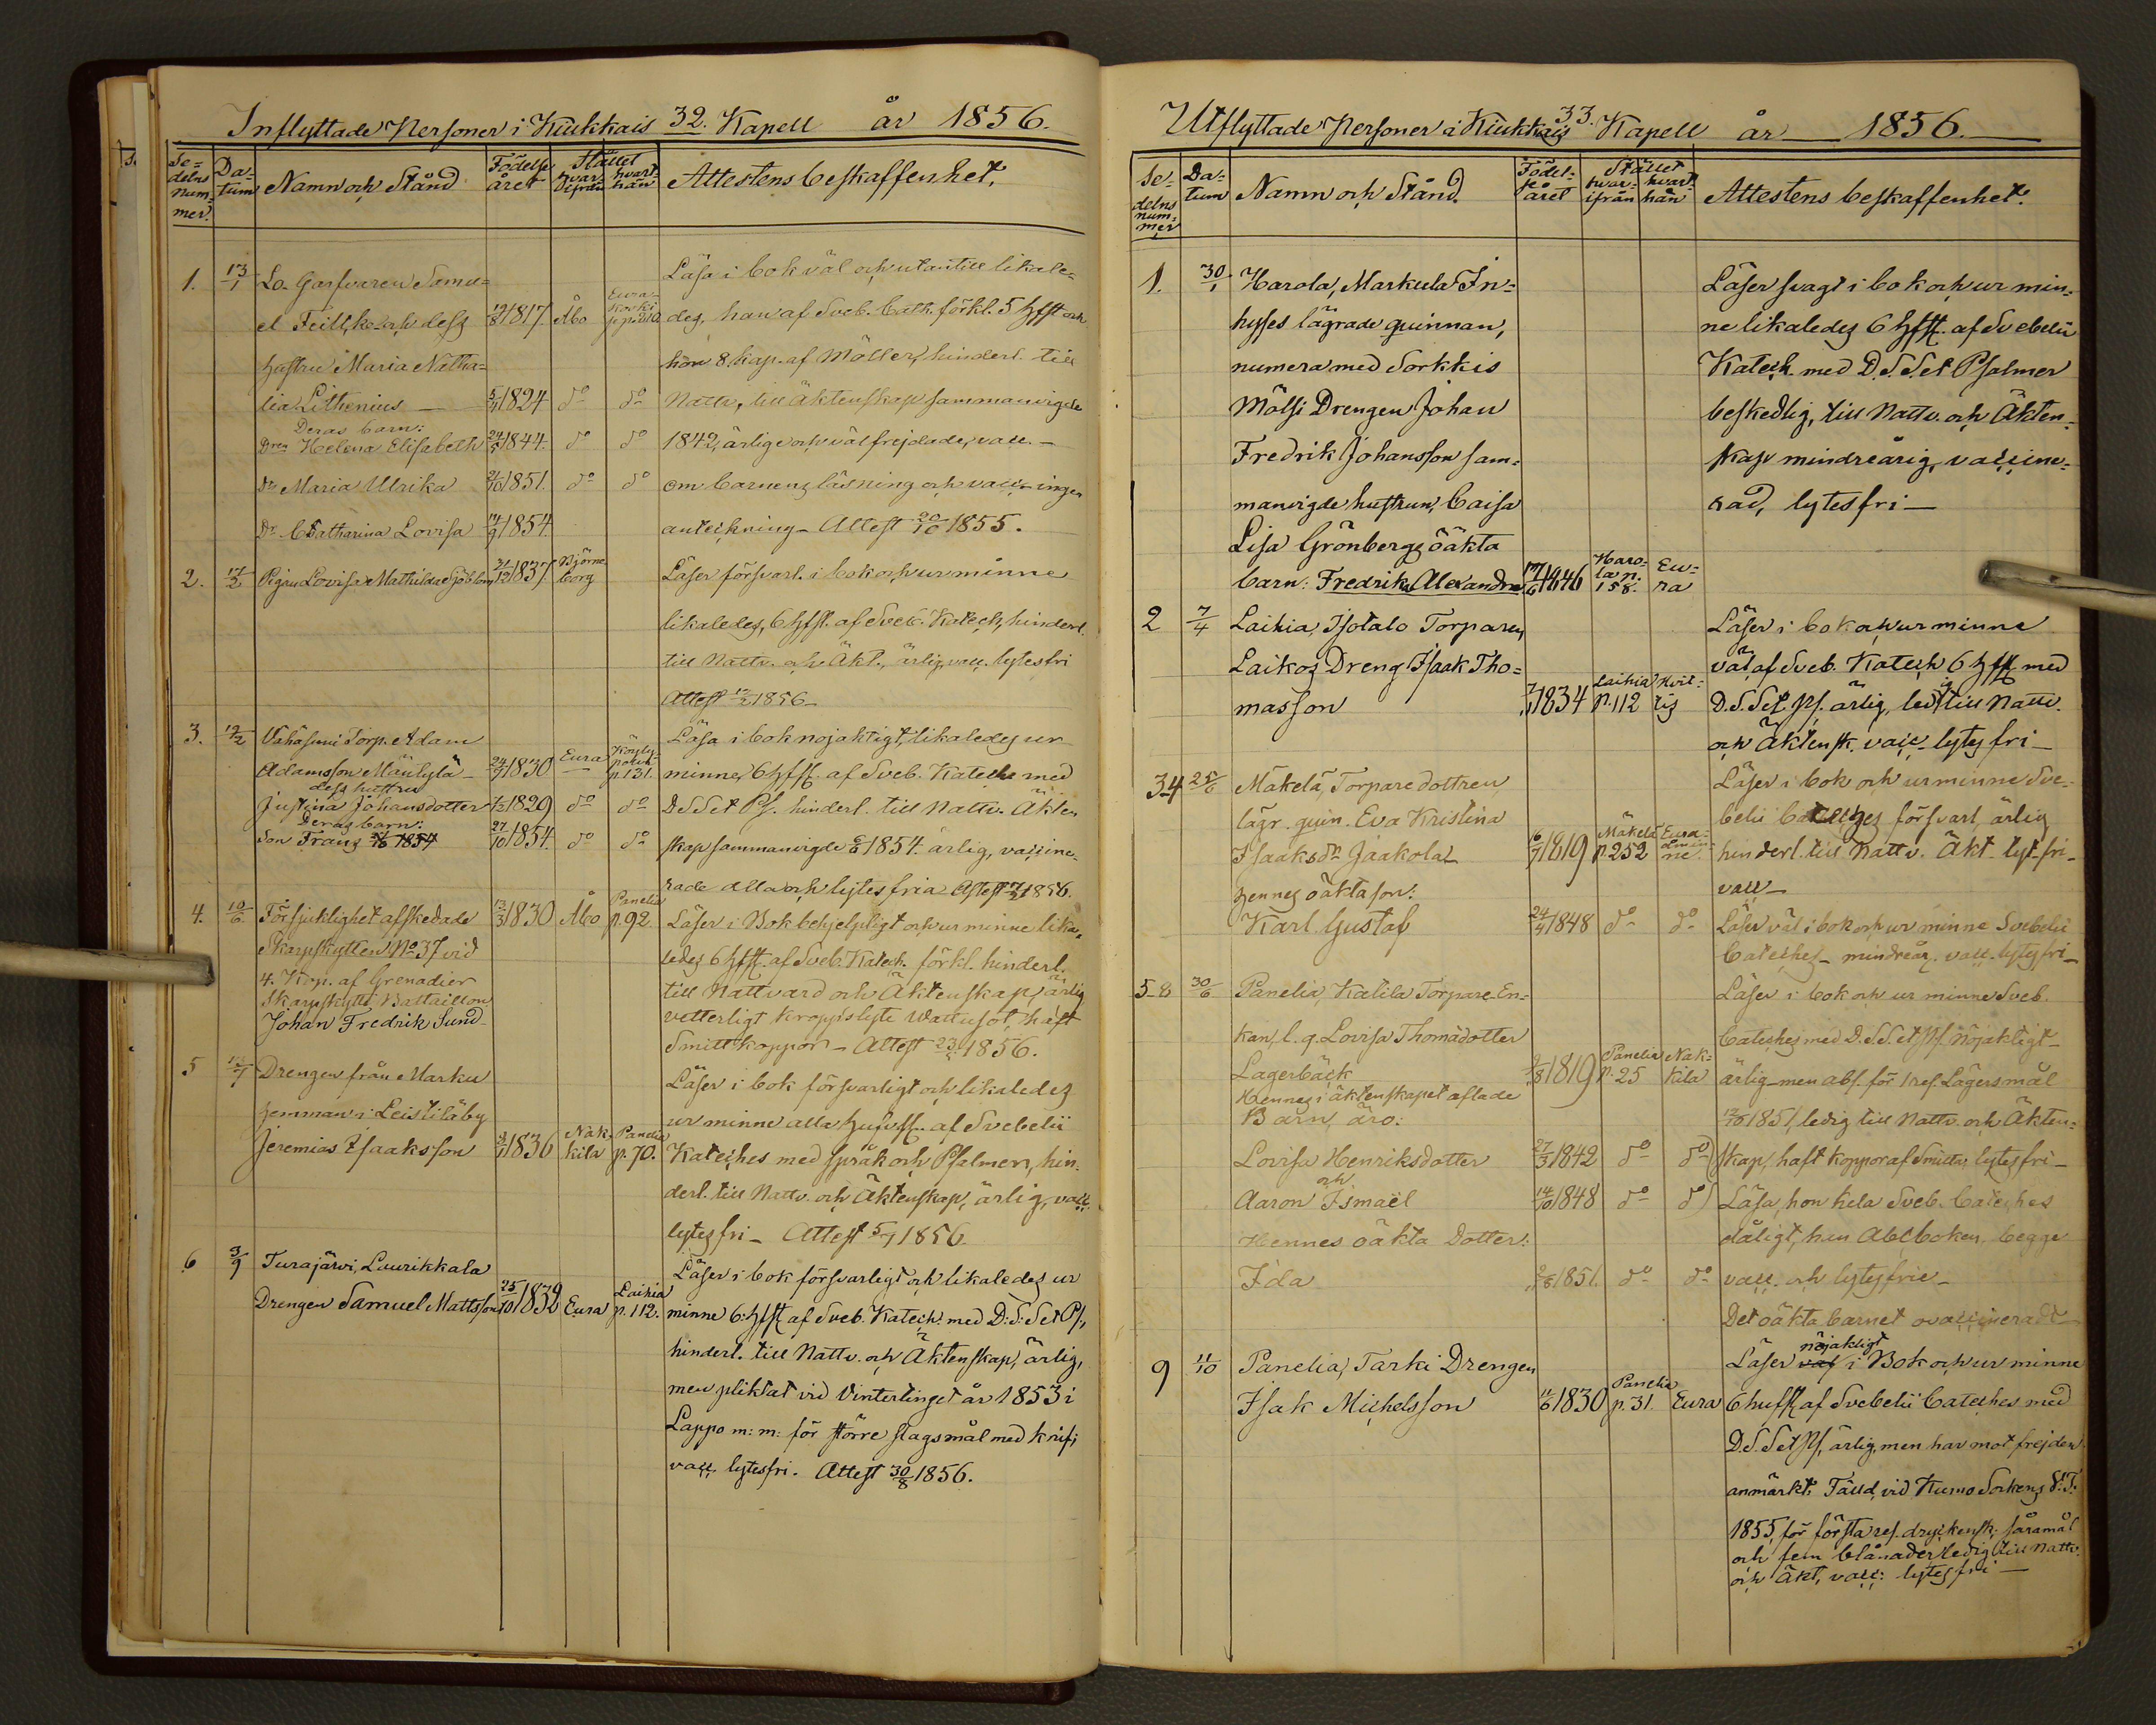 Inflyttade Personer i Kiukkais 32. Kapell år 1856.
Se=
delns
num=
mer.
Da=
tum
Namn och Stånd
Födelse
året
Stället
hvar-
ifrån
hvart-
hän
Attestens beskaffenhet.
1. 13/1 Lo. Garfvaren Samu=
el Feilke och dess 19/8 1817. Åbo
hustru Maria Natha=
lia Lithenius 5/11 1824 do do
Deras barn:
Dr Helena Elisabeth 24/5 1844. do do
Dr Maria Ulrika 21/10 1851. do do
Dr Catharina Lovisa 14/9 1854.
Läsa i bok väl och utantill likale=
des, han af Sveb. Cath. förkl. 5 hfst och
hon 8 kap. af Möller, hinderl. till
Nattv., till äktenskap sammanvigde
1842, ärlige och välfrejdade, vacc. –
om barnens läsning och vacc. ingen
anteckning – Attest 20/10 1855.
2. 17/2 Pigan Lovisa Mathilda Sjöblom 21/12 1837. Björne
borg
Läser försvarl. i bok och ur minne
likaledes, 6 hfst. af Sveb. Katech, hinderl.
till Nattv. och Äkt., ärlig, vacc. lytesfri
Attest 12/2 1856 –
3. 19/2 Vahäsuni Torp. Adam
Adamsson Mäulylä 24/7 1830 Eura Köyly-
polvi
p. 131.
dess hustru
Justina Johansdotter 1829 do do
Deras barn:
Son Frans 27/10 1854. do do
Läsa i bok nöjaktigt, likaledes ur
minne 6 hfst. af Sveb. Kateches med
D. S. S. et Ps. hinderl. till Nattv. Äkten
skap sammanvigde 1854. ärlig, vaccine-
rade alla och lytesfria Attest 1856.
4. 10/6 För sjuklighet afskedade 13/3 1830 Åbo Panelia
p. 92.
Skarpskytten No 37 vid
4. Kop. af Grenadier
Skarpskytte Battaillon
Johan Fredrik Sund
Läser i Bok behjelpligt och ur minne lika-
ledes 6 hfst. af Sveb. Katech. förkl. hinderl.
till Nattvard och Äktenskap, ärlig
vetterligt kroppslyte Wattusot, haft
Smittkoppor – Attest 23/5 1856.
5 12/7 Drengen från Marku
hemman i Leistilä by
Jeremias Isaaksson 1836 Nak-
kila Panelia
p. 70.
Läser i bok försvarligt och likaledes
ur minne alla hufvst. af Svebelii
Kateches med språk och Psalmen, hin-
derl. till Nattv. och Äktenskap, ärlig, vacc.
lytesfri – Attest 5/7 1856.
6 3/9 Turajärvi, Laurikkala
Drengen Samuel Mattsson 25/10 1832 Eura Laihia
p. 112.
Läser i bok försvarligt och likaledes ur
minne 6: hfst af Sveb. Katech. med D: S: S et Ps,
hinderl. till Nattv. och Äktenskap, ärlig,
men pliktat vid Vintertinget år 1853 i
Lappo m: m: för större slagsmål med knif;
vacc. lytesfri. Attest 30/8 1856.
Utflyttade Personer i Kiukkais 33. Kapell år 1856.
Se-
delns
num=
mer
Da-
tum
Namn och Stånd.
Födel-
se
året
Stället
hvar-
ifrån
hvart-
hän
Attestens beskaffenhet.
1. 30/1 Harola, Markula In=
hyses lägrade quinnan,
numera med Sorkkis
Mölsi Drengen Johan
Fredrik Johansson sam=
manvigde hustrun, Caisa
Lisa Grönbergs oäkta
barn: Fredrika Alexandra 17/6 1846 Haro-
la n.
158. Eu=
ra
Läser svagt i bok och ur min=
ne likaledes 6 hfst. af Svebelii
Katech. med D. S. S. et Psalmer
beskedlig, till Nattv. och Äkten=
skap mindreårig, vaccine=
rad, lytesfri –
2 7/4 Laihia, Isotalo Torparen
Laikos Dreng Isaak Tho=
masson 1834 Laihia
p. 112 Hvit=
tis
Läser i bok och ur minne
väl af Sveb. Katech 6 hfst. med
D. S. S et. Ps. ärlig, ledig till Nattv.
och Äktensk. vacc. lytesfri –
3-4 25/6 Mäkelä, Torpare dottren
lägr. quin. Eva Kristina
Isaaksdr Jaakola 16/7 1819 Mäkelä
p. 252 Eura-
åmin-
ne.
hennes oäkta son:
Karl Gustaf 24/4 1848 do do
Läser i bok och ur minne Sve-
belii Cateches försvarl, ärlig
hinderl. till Nattv. Äkt. lyt. fri –
vacc –
Läser väl i bok och ur minne Svebelii
Cateches – mindreår. vacc. lytesfri –
5-8 30/6 Panelia, Katila Torpare En-
kan, l. q. Lovisa Thomasdotter
Lagerbäck 1819 Panelia
p. 25 Nak-
kila
Hennes i äktenskapet aflade
Barn äro:
Lovisa Henriksdotter 27/3 1842 do do
och
Aaron Ismaël 14/10 1848 do do
Hennes oäkta Dotter:
Ida 1851. do do
Läser i bok och ur minne Sveb.
Cateches med D. S. S. et Ps. nöjaktigt
ärlig – men abs. för 1 res. Lägersmål
1851, ledig till Nattv. och Äkten=
skap, haft koppor af Smitta, lytesfri –
Läsa, hon hela Sveb. Cateches
dåligt, han Abcboken, begge
vacc. och lytesfrie –
Det oäkta barnet ovaccineradt
9 11/10 Panelia, Tarki Drengen
Isak Michelsson 11/6 1830 Panelia
p. 31. Eura
nöjaktigt
Läser väl i Bok och ur minne
6 hufst. af Svebelii Cateches med
D. S. S et Ps, ärlig, men har mot frejden
anmärkt: Fälld, vid Kumo Sockens V. T.
1855, för första res. dryckensk: såramål
och fem blånader, ledig till Nattv.
och Äkt, vacc: lytesfri –